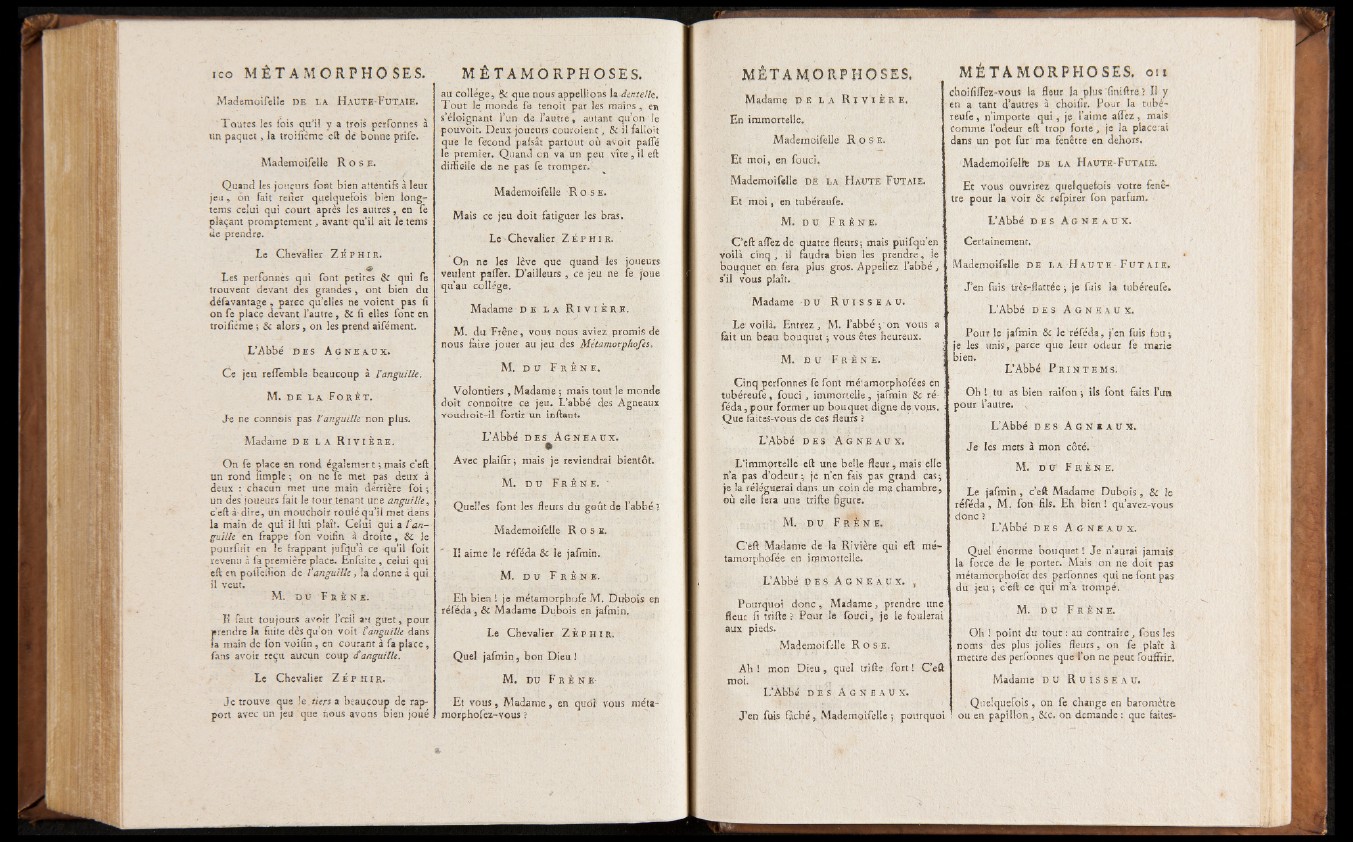 100 MÊTAMORPHOSES.
Mademoiſelle DE LA HAUTE-FUTAIE.
Toutes les fois qu'il y a trois perſonnes à
un paquet, la troiſième eſt de bonne priſe.
Mademoiſelle ROSE.
Quand les joueurs ſont bien attentifs à leur
jeu, on fait reſter quelquefois bien long-
tems celui qui court après les autres, en ſe
plaçant promptement, avant qu'il ait le tems
de prendre.
Le Chevalier ZÉPHIR.
Les perſonnes qui ſont petites & qui ſe
trouvent devant des grandes, ont bien du
déſavantage, parce qu'elles ne voient pas ſi
on ſe place devant l'autre, & ſi elles ſont en
troiſième; & alors, on les prend aiſément.
L'Abbé DES AGNEAUX.
Ce jeu reſſemble beaucoup à l'anguille.
M. DE LA FORÊT.
Je ne connois pas l'anguille non plus.
Madame DE LA RIVIÈRE.
On ſe place en rond également; mais c'eſt
un rond ſimple; on ne ſe met pas deux à
deux : chacun met une main derrière ſoi;
un des joueurs fait le tour tenant une anguille,
c'eſt-à-dire, un mouchoir roulé qu'il met dans
la main de qui il lui plaît. Celui qui a l'an-
guille en frappe ſon voiſin à droite, & le
pourſuit en le frappant juſqu'à ce qu'il ſoit
revenu à ſa première place. Enſuite, celui qui
eſt en poſſeſſion de l'anguille, la donne à qui
il veut.
M. DU FRÊNE.
Il faut toujours avoir l'œil au guet, pour
prendre la fuite dès qu'on voit l'anguille dans
la main de ſon voiſin, en courant à ſa place,
ſans avoir reçu aucun coup d'anguille.
Le Chevalier ZÉPHIR.
Je trouve que le tiers a beaucoup de rap-
port avec un jeu que nous avons bien joué
MÊTAMORPHOSES.
au collége, & que nous appellions la dentelle.
Tout le monde ſe tenoit par les mains, en
s'éloignant l'un de l'autre, autant qu'on le
pouvoit. Deux joueurs couroient, & il falloit
que le ſecond paſsât partout où avoit paſſé
le premier. Quand on va un peu vite, il eſt
difficile de ne pas ſe tromper.
Mademoiſelle ROSE.
Mais ce jeu doit fatiguer les bras.
Le Chevalier ZÉPHIR.
On ne les lève que quand les joueurs
veulent paſſer. D'ailleurs, ce jeu ne ſe joue
qu'au collége.
Madame DE LA RIVIÈRE.
M. du Frêne, vous nous aviez promis de
nous faire jouer au jeu des Métamorphoſes.
M. DU FRÊNE.
Volontiers, Madame; mais tout le monde
doit connoître ce jeu. L'abbé des Agneaux
voudroit-il ſortir un inſtant.
L'Abbé DES AGNEAUX.
Avec plaiſir; mais je reviendrai bientôt.
M. DU FRÊNE.
Quelles ſont les fleurs du goût de l'abbé?
Mademoiſelle ROSE.
Il aime le réſéda & le jaſmin.
M. DU FRÊNE.
Eh bien! je métamorphoſe M. Dubois en
réſéda, & Madame Dubois en jaſmin.
Le Chevalier ZÉPHIR.
Quel jaſmin, bon Dieu!
M. DU FRÊNE
Et vous, Madame, en quoi vous méta-
morphoſez-vous?
MÊTAMORPHOSES.
Madame DE LA RIVIÈRE.
En immortelle.
Mademoiſelle ROSE.
Et moi, en ſouci.
Mademoiſelle DE LA HAUTE FUTAIE.
Et moi, en tubéreuſe.
M. DU FRÊNE.
C'eſt aſſez de quatre fleurs; mais puiſqu'en
voilà cinq, il faudra bien les prendre, le
bouquet en ſera plus gros. Appellez l'abbé,
s'il vous plaît.
Madame DU RUISSEAU.
Le voilà. Entrez, M. l'abbé; on vous a
fait un beau bouquet; vous êtes heureux.
M. DU FRÊNE.
Cinq perſonnes ſe ſont métamorphoſées en
tubéreuſe, ſouci, immortelle, jaſmin & ré-
ſéda, pour former un bouquet digne de vous.
Que faites-vous de ces fleurs?
L'Abbé DES AGNEAUX.
L'immortelle eſt une belle fleur, mais elle
n'a pas d'odeur; je n'en fais pas grand cas;
je la réléguerai dans un coin de ma chambre,
où elle fera une triſte figure.
M. DU FRÊNE.
C'eſt Madame de la Rivière qui eſt mé-
tamorphoſée en immortelle.
L'Abbé DES AGNEAUX.
Pourquoi donc, Madame, prendre une
fleur ſi triſte? Pour le ſouci, je le foulerai
aux pieds.
Mademoiſelle ROSE.
Ah! mon Dieu, quel triſte ſort! C'eſt
moi.
L'Abbé DES AGNEAUX.
J'en ſuis fâché, Mademoiſelle; pourquoi
MÉTAMORPHOSES. 011
choiſiſſez-vous la fleur la plus ſiniſtre? Il y
en a tant d'autres à choiſir. Pour la tubé-
reuſe, n'importe qui, je l'aime aſſez, mais
comme l'odeur eſt trop forte, je la placerai
dans un pot ſur ma fenêtre en dehors.
Mademoiſelle DE LA HAUTE-FUTAIE.
Et vous ouvrirez quelquefois votre fenê-
tre pour la voir & reſpirer ſon parfum.
L'Abbé DES AGNEAUX.
Certainement.
Mademoiſelle DE LA HAUTE-FUTAIE.
J'en ſuis très-flattée; je ſuis la tubéreuſe.
L'Abbé DES AGNEAUX.
Pour le jaſmin & le réſéda, j'en ſuis fou;
je les unis, parce que leur odeur ſe marie
bien.
L'Abbé PRINTEMS.
Oh! tu as bien raiſon; ils ſont faits l'un
pour l'autre.
L'Abbé DES AGNEAUX.
Je les mets à mon côté.
M. DU FRÊNE.
Le jaſmin, c'eſt Madame Dubois, & le
réſéda, M. ſon fils. Eh bien! qu'avez-vous
donc?
L'Abbé DES AGNEAUX.
Quel énorme bouquet! Je n'aurai jamais
la force de le porter. Mais on ne doit pas
métamorphoſer des perſonnes qui ne ſont pas
du jeu; c'eſt ce qui m'a trompé.
M. DU FRÊNE.
Oh! point du tout : au contraire, ſous les
noms des plus jolies fleurs, on ſe plaît à
mettre des perſonnes que l'on ne peut ſouffrir.
Madame DU RUISSEAU.
Quelquefois, on ſe change en baromètre
ou en papillon, &c. on demande : que faites-